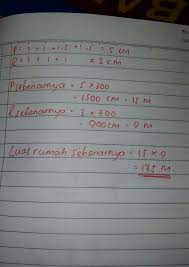 P = 1 + 1 + 1.5 + 1.5 = 5 cm
l = 1 + 1 + 1 = 3 cm
P sebenarnya = 5 x 300
= 1500 cm = 15 m
l sebenarnya = 3 x 300
= 900 cm = 9 m
Luas rumah sebenarnya = 15 x 9
= 135 m